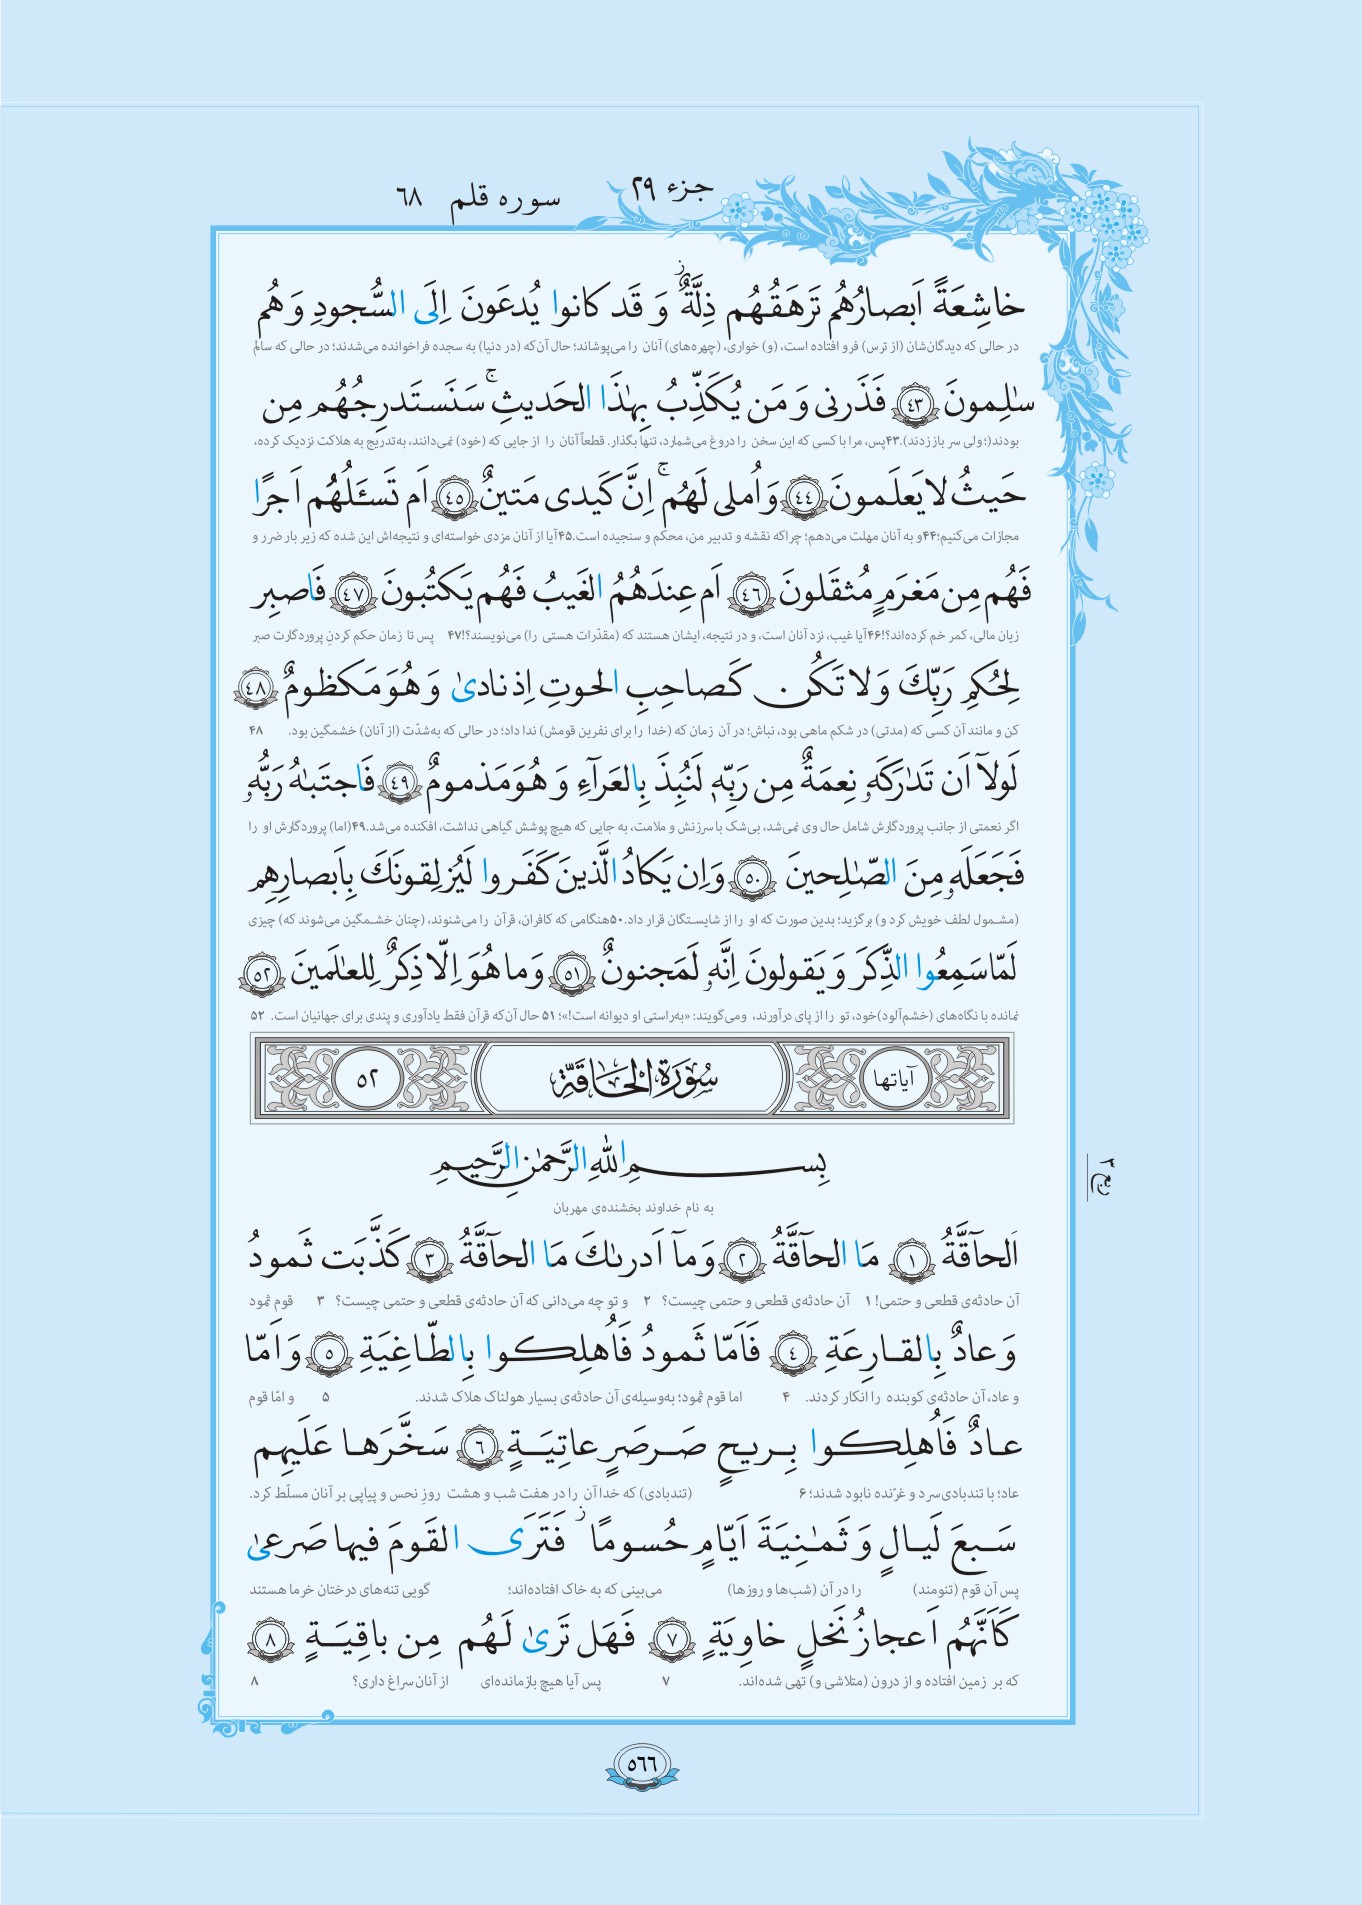 جزء ۲۹
سوره قلم ۶۸
خاشِعَةً اَبصارُهُم تَرهَقُهُم ذِلَّةٌ ۖ وَ قَد كانوا يُدعَونَ اِلَى السُّجودِ وَ هُم
در حالی که دیدگان‌شان (از ترس) فرو افتاده است، (و) خواری، (چهره‌های) آنان را می‌پوشاند؛ حال آن‌که (در دنیا) به سجده فراخوانده می‌شدند؛ در حالی که سالم
سٰلِمونَ ﴿٤٣﴾ فَذَرنى وَ مَن يُكَذِّبُ بِهٰذَا الحَديثِ ۚ سَنَستَدرِجُهُم مِن
بودند(؛ ولی سر باز زدند).۴۳پس، مرا با کسی که این سخن را دروغ می‌شمارد، تنها بگذار. قطعاً آنان را از جایی که (خود) نمی‌دانند، به‌تدریج به هلاکت نزدیک کرده،
حَيثُ لا يَعلَمونَ ﴿٤٤﴾ وَ اُملى لَهُم ۚ اِنَّ كَيدى مَتينٌ ﴿٤٥﴾ اَم تَسـَٔلُهُم اَجرًا
مجازات می‌کنیم؛۴۴و به آنان مهلت می‌دهم؛ چراکه نقشه و تدبیر من، محکم و سنجیده است.۴۵آیا از آنان مزدی خواسته‌ای و نتیجه‌اش این شده که زیر بار ضرر و
فَهُم مِن مَغرَمٍ مُثقَلونَ ﴿٤٦﴾ اَم عِندَهُمُ الغَيبُ فَهُم يَكتُبونَ ﴿٤٧﴾ فَاصبِر
زیان مالی، کمر خم کرده‌اند؟!۴۶آیا غیب، نزد آنان است، و در نتیجه، ایشان هستند که (مقدّرات هستی را) می‌نویسند؟!۴۷ پس تا زمان حکم کردنِ پروردگارت صبر
لِحُكمِ رَبِّكَ وَ لا تَكُن كَصاحِبِ الحوتِ اِذ نادىٰ وَ هُوَ مَكظومٌ ﴿٤٨﴾
کن و مانند آن کسی که (مدتی) در شکم ماهی بود، نباش؛ در آن زمان که (خدا را برای نفرین قومش) ندا داد؛ در حالی که به‌شدّت (از آنان) خشمگین بود. ۴۸
لَولآ اَن تَدٰرَكَهۥ نِعمَةٌ مِن رَبِّهٖ لَنُبِذَ بِالعَرآءِ وَ هُوَ مَذمومٌ ﴿٤٩﴾ فَاجتَبٰهُ رَبُّهۥ
اگر نعمتی از جانب پروردگارش شامل حال وی نمی‌شد، بی‌شک با سرزنش و ملامت، به جایی که هیچ پوشش گیاهی نداشت، افکنده می‌شد.۴۹(اما) پروردگارش او را
فَجَعَلَهۥ مِنَ الصّٰلِحينَ ﴿٥٠﴾ وَ اِن يَكادُ الَّذينَ كَفَروا لَيُزلِقونَكَ بِاَبصارِهِم
(مشمول لطف خویش کرد و) برگزید؛ بدین صورت که او را از شایستگان قرار داد.۵۰هنگامی که کافران، قرآن را می‌شنوند، (چنان خشمگین می‌شوند که) چیزی
لَمّا سَمِعُوا الذِّكرَ وَ يَقولونَ اِنَّهۥ لَمَجنونٌ ﴿٥١﴾ وَ ما هُوَ اِلّا ذِكرٌ لِلعٰلَمينَ ﴿٥٢﴾
نمانده با نگاه‌های (خشم‌آلود)خود، تو را از پای درآورند، ومی‌گویند: «به‌راستی او دیوانه است!»؛ ۵۱ حال آن‌که قرآن فقط یادآوری و پندی برای جهانیان است. ۵۲
آیاتها
سُورَةُ الْحَاقَّةِ
٥٢
بِسمِ اللّٰهِ الرَّحمٰنِ الرَّحيمِ
ربع ۳
به نام خداوند بخشنده‌ی مهربان
اَلحآقَّةُ ﴿١﴾ مَا الحآقَّةُ ﴿٢﴾ وَ مآ اَدرىٰكَ مَا الحآقَّةُ ﴿٣﴾ كَذَّبَت ثَمودُ
آن حادثه‌ی قطعی و حتمی! ۱ آن حادثه‌ی قطعی و حتمی چیست؟ ۲ و تو چه می‌دانی که آن حادثه‌ی قطعی و حتمی چیست؟ ۳ قوم ثمود
وَ عادٌ بِالقارِعَةِ ﴿٤﴾ فَاَمّا ثَمودُ فَاُهلِكوا بِالطّاغِيَةِ ﴿٥﴾ وَ اَمّا
و عاد، آن حادثه‌ی کوبنده را انکار کردند. ۴ اما قوم ثمود؛ به‌وسیله‌ی آن حادثه‌ی بسیار هولناک هلاک شدند. ۵ و امّا قوم
عادٌ فَاُهلِكوا بِريحٍ صَرصَرٍ عاتِيَةٍ ﴿٦﴾ سَخَّرَها عَلَيهِم
عاد؛ با تندبادی سرد و غرّنده نابود شدند؛ ۶ (تندبادی) که خدا آن را در هفت شب و هشت روزِ نحس و پیاپی بر آنان مسلّط کرد.
سَبعَ لَيالٍ وَ ثَمٰنِيَةَ اَيّامٍ حُسومًا ۖ فَتَرَى القَومَ فيها صَرعىٰ
پس آن قوم (تنومند) را در آن (شب‌ها و روزها) می‌بینی که به خاک افتاده‌اند؛ گویی تنه‌های درختان خرما هستند
كَاَنَّهُم اَعجازُ نَخلٍ خاوِيَةٍ ﴿٧﴾ فَهَل تَرىٰ لَهُم مِن باقِيَةٍ ﴿٨﴾
که بر زمین افتاده و از درون (متلاشی و) تهی شده‌اند. ۷ پس آیا هیچ بازمانده‌ای از آنان سراغ داری؟ ۸
٥٦٦